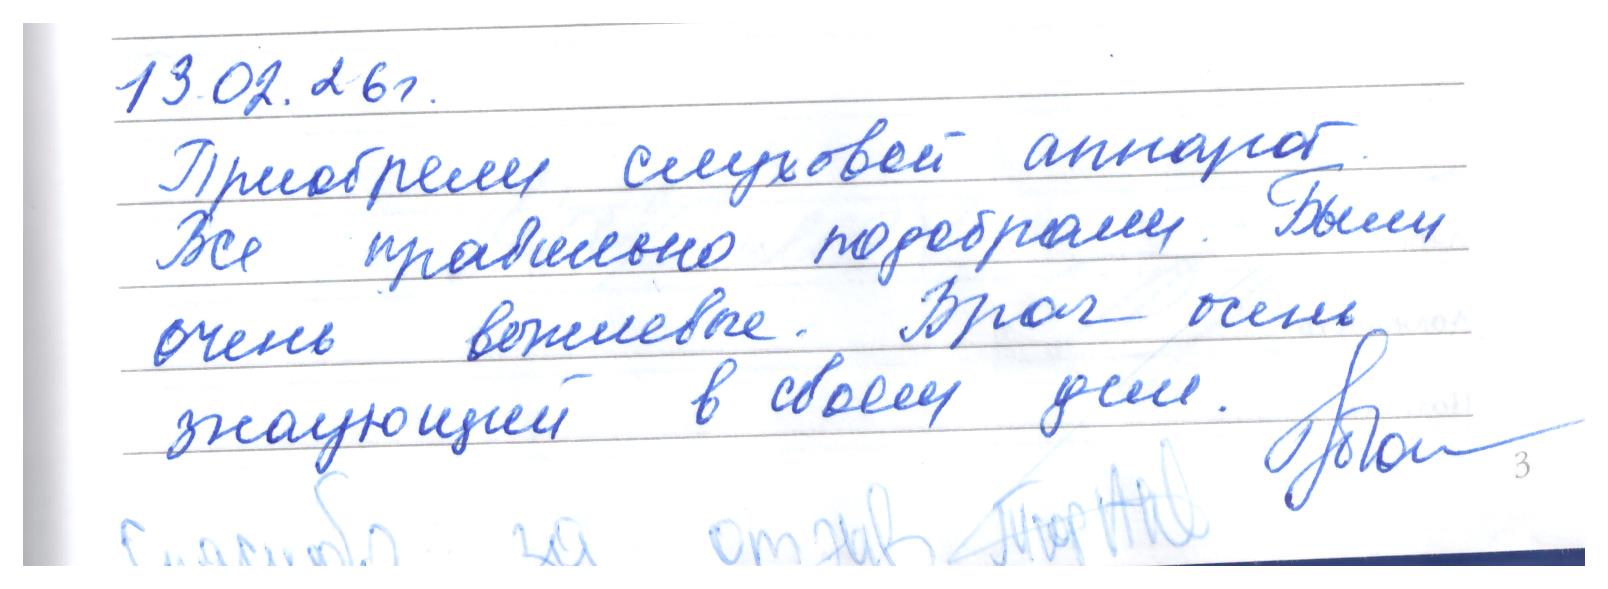 13.02.26г.
Приобрели слуховой аппарат.
Все правильно подобрали. Были
очень вежливые. Врач очень
знающий в своем деле.
3
Спасибо за отзыв